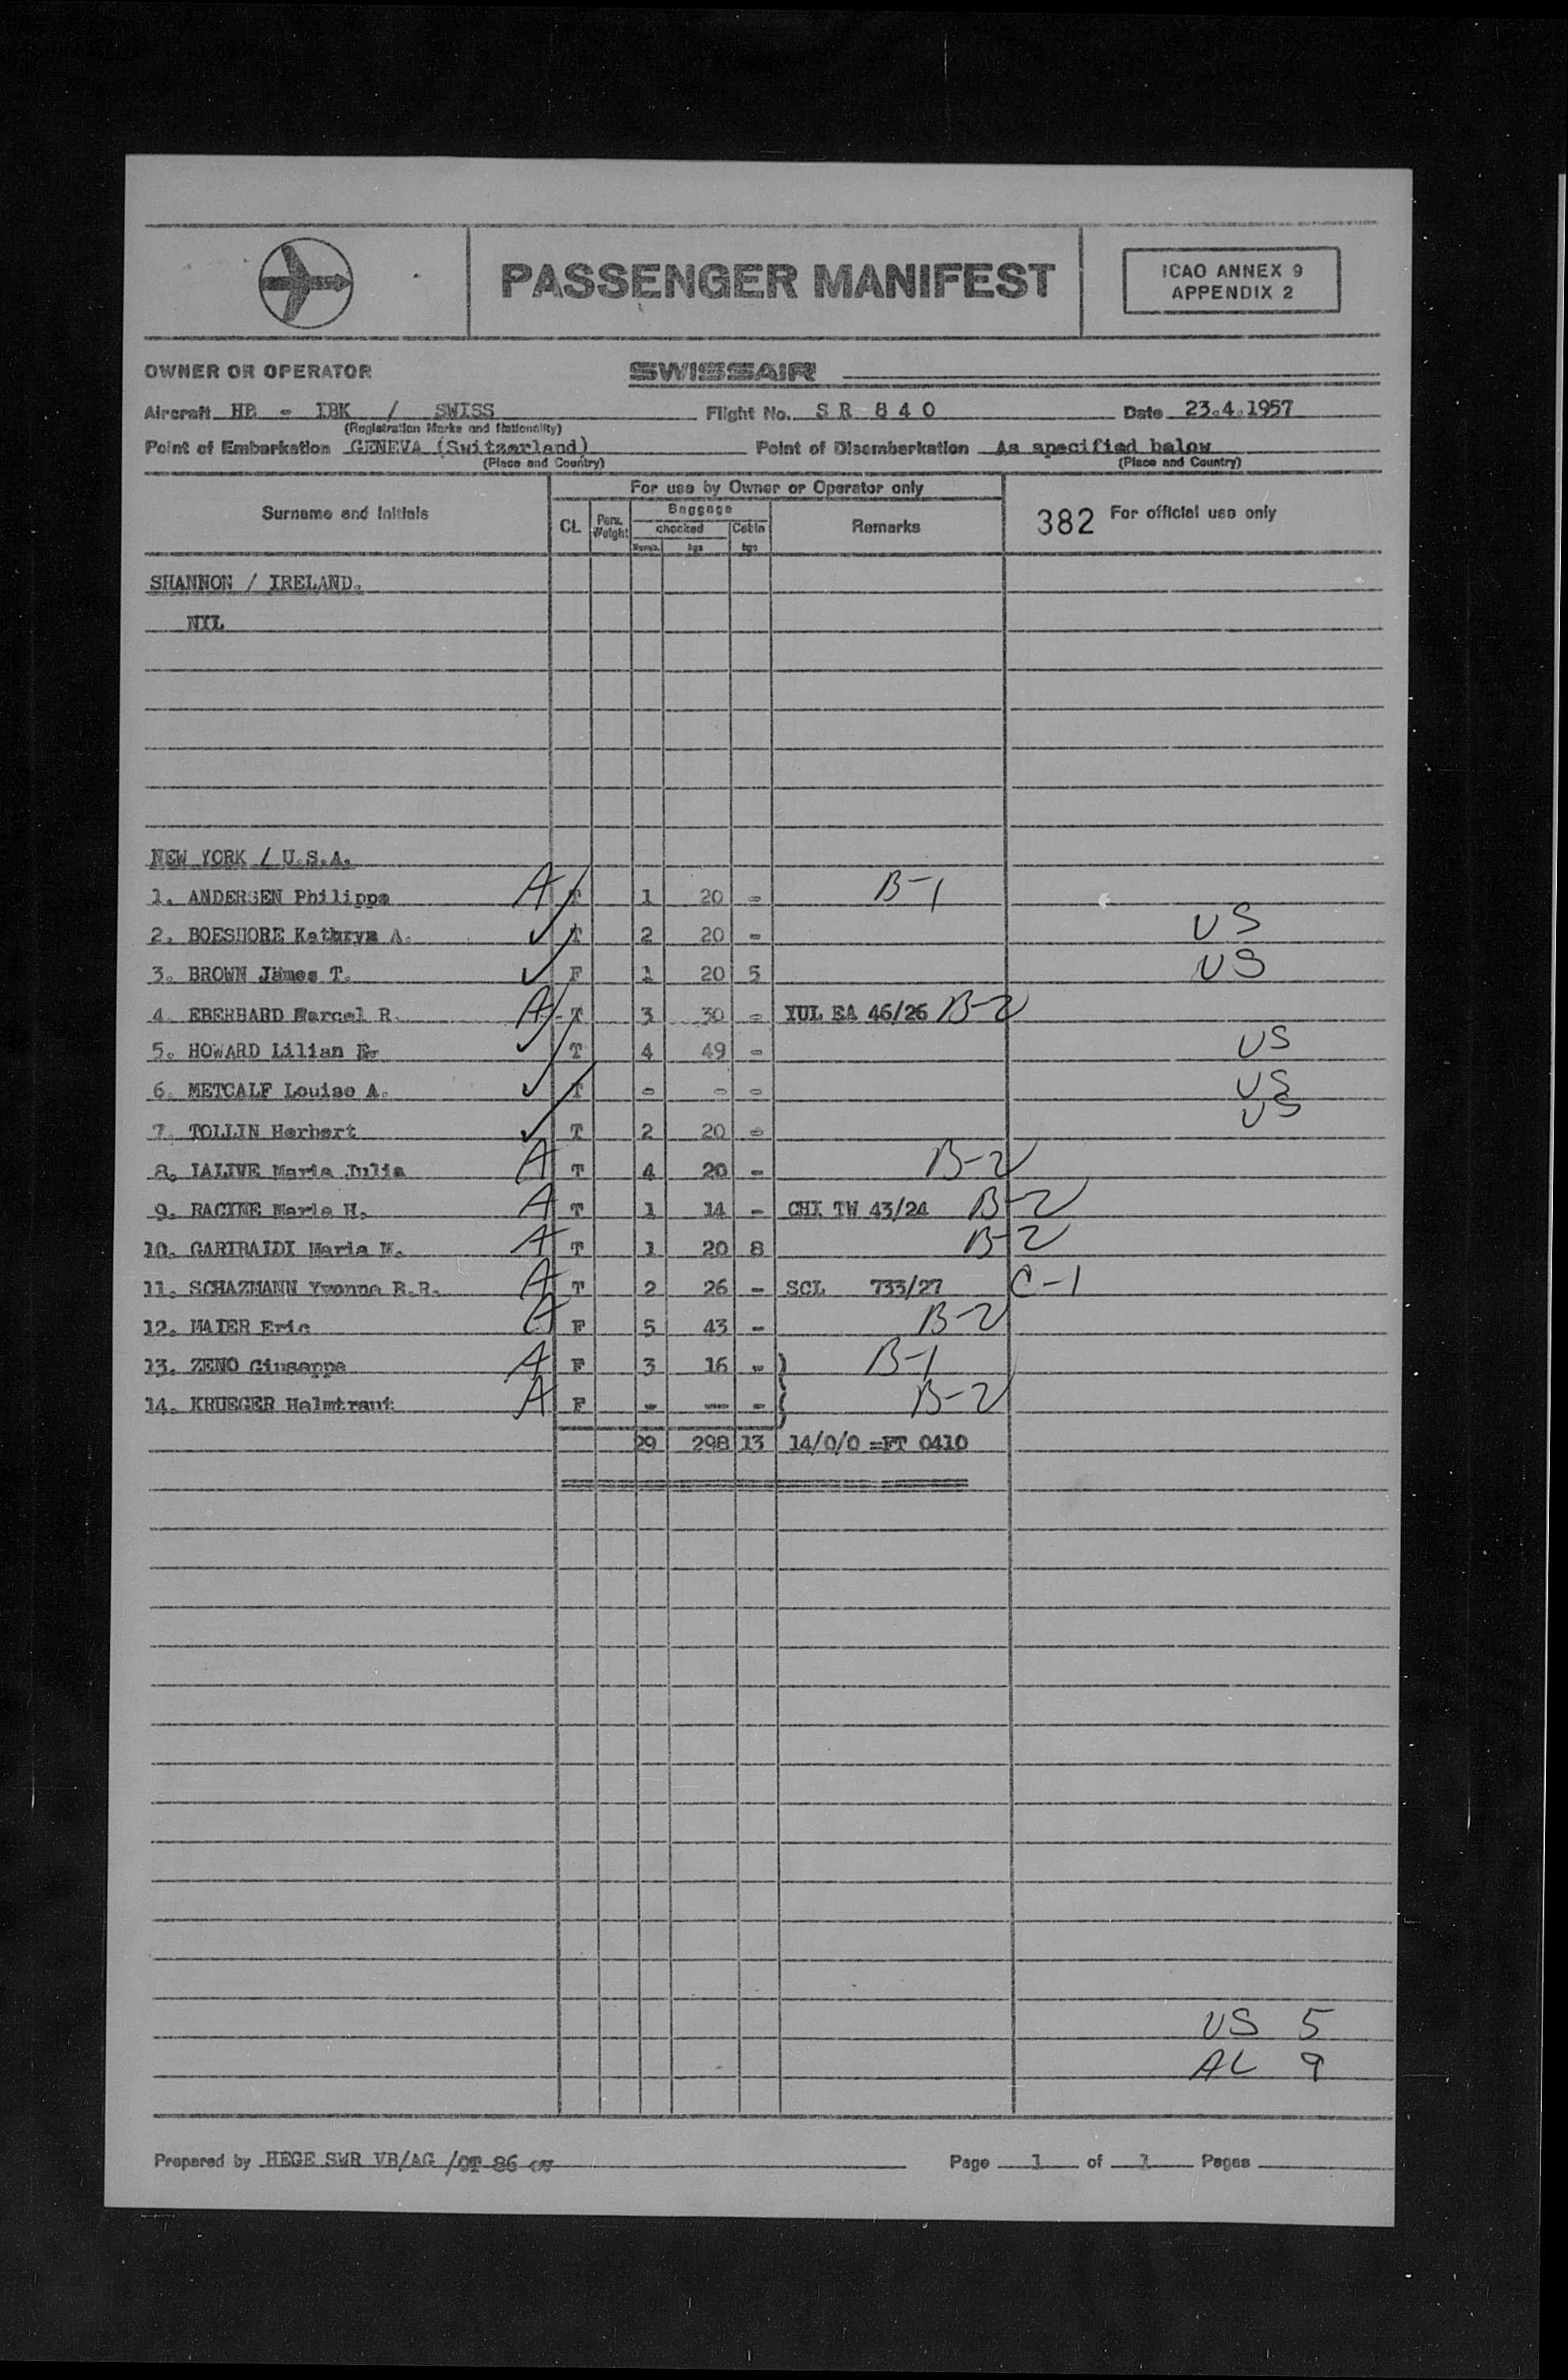 PASSENGER MANIFEST
ICAO ANNEX 9
APPENDIX 2
OWNER OR OPERATOR SWISSAIR
Aircraft HB - IBK / SWISS Flight No. SR 840 Date 23.4.1957
(Registration Marks and Nationality)
Point of Embarkation GENEVA (Switzerland) Point of Disembarkation As specified below
(Place and Country) (Place and Country)
For use by Owner or Operator only
Surname and Initials CL Pers. Weight Baggage checked Cabin Remarks 382 For official use only
Numb. kgs kgs
SHANNON / IRELAND.
NIL
NEW YORK / U.S.A.
1. ANDERSEN Philippe A T 1 20 - B-1
2. BOESHORE Kathryn A. ✓ T 2 20 - US
3. BROWN James T. ✓ F 1 20 5 US
4. EBERHARD Marcel R. A T 3 30 - YUL EA 46/26 B-2
5. HOWARD Lilian E. ✓ T 4 49 - US
6. METCALF Louise A. ✓ T - - - US
7. TOLLIN Herbert ✓ T 2 20 - US
8. IALIVE Maria Julia A T 4 20 - B-2
9. RACINE Marie H. A T 1 14 - CHI TW 43/24 B-2
10. GARIBAIDI Maria M. A T 1 20 8 B-2
11. SCHAZMANN Yvonne B.R. A T 2 26 - SCL 733/27 C-1
12. MAIER Eric A F 5 43 - B-2
13. ZENO Giuseppe A F 3 16 - B-1
14. KRUEGER Helmtraut A F - - - B-2
29 298 13 14/0/0 =FT 0410
US 5
AL 9
Prepared by HEGE SWR VB/AG /OT 86 Page 1 of 1 Pages